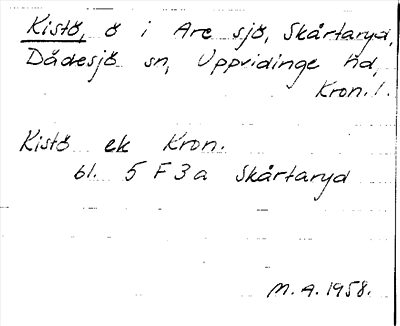 Kistö, ö i Are sjö, Skårtaryd,
Dädesjö sn, Uppvidinge hd,
Kron. l.
Kistö ek Kron.
bl. 5 F 3 a Skårtaryd
M. A. 1958.